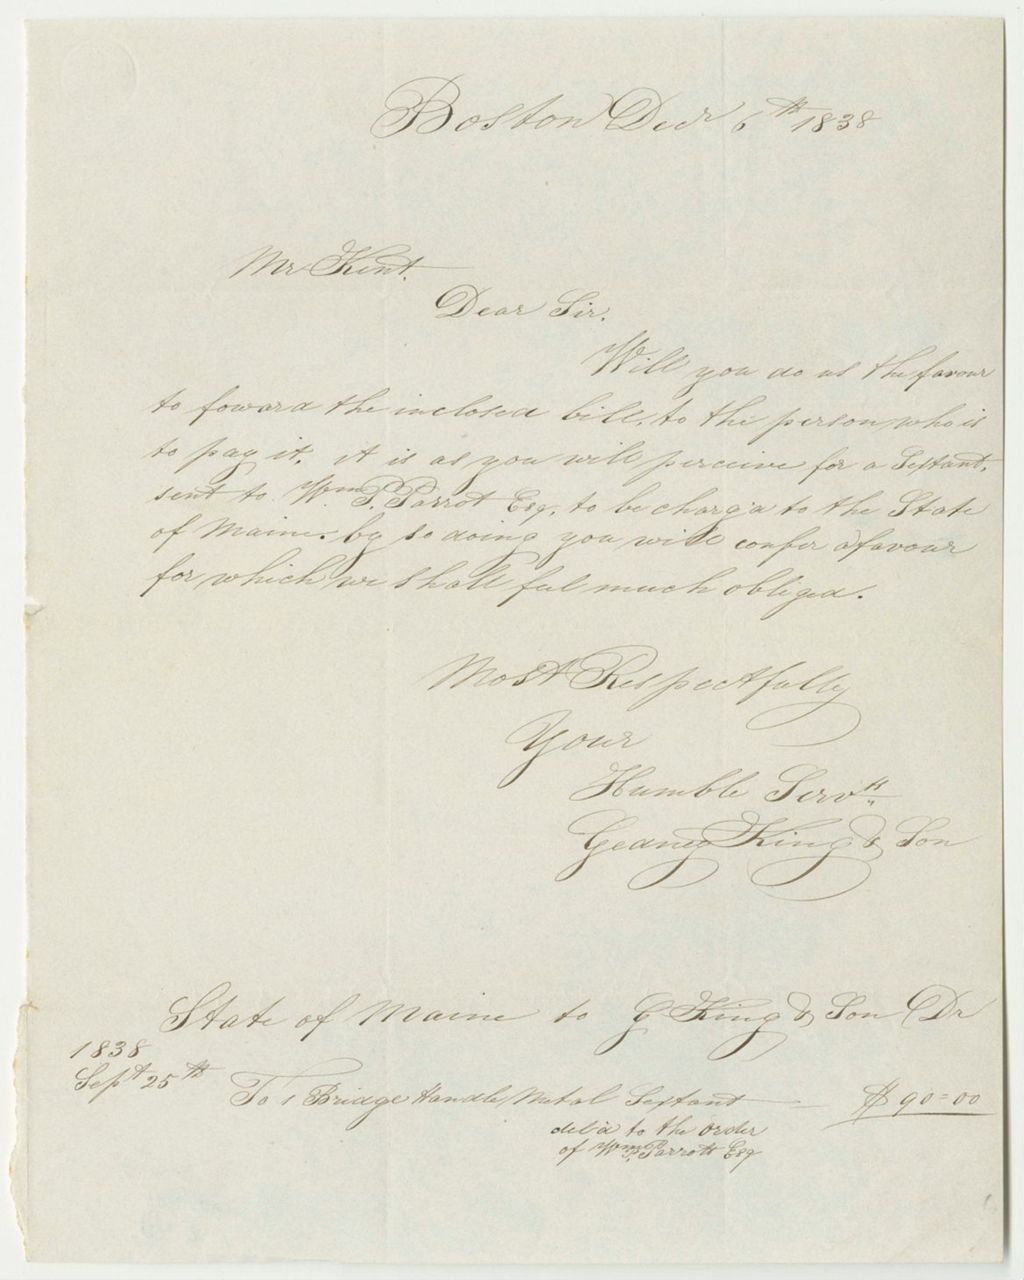 Boston Decr 6th 1838
Mr Kent.
Dear Sir.
Will you do us the favour
to foward the inclosed bill, to the person who is
to pay it, it is as you will perceive for a Sextant,
sent to Wm P. Parrot Esq, to be charg'd to the State
of Maine. by so doing you will confer a favour
for which we shall feel much obliged.
Most Respectfully
Your
Humble Servts
Gedney King & Son
State of Maine to G King & Son Dr
1838
Sept 25th To 1 Bridge Handle Metal Sextant $90=00
deld to the order
of Wm P. Parrott Esq